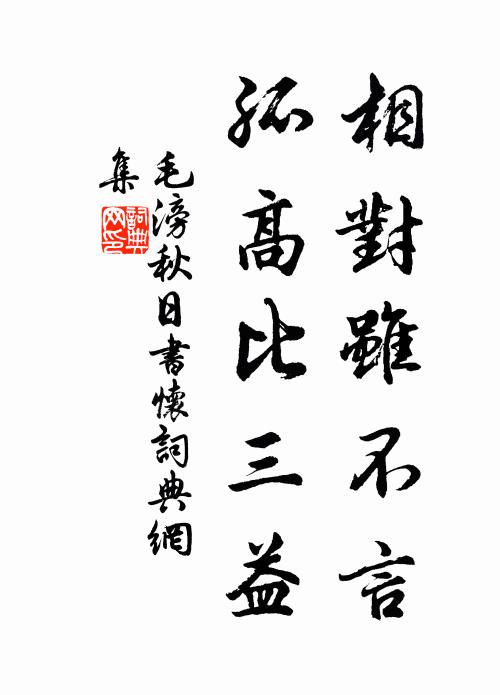 相對雖不言
孤高比三益
毛滂秋日書懷詞典網
集
詞典
网印